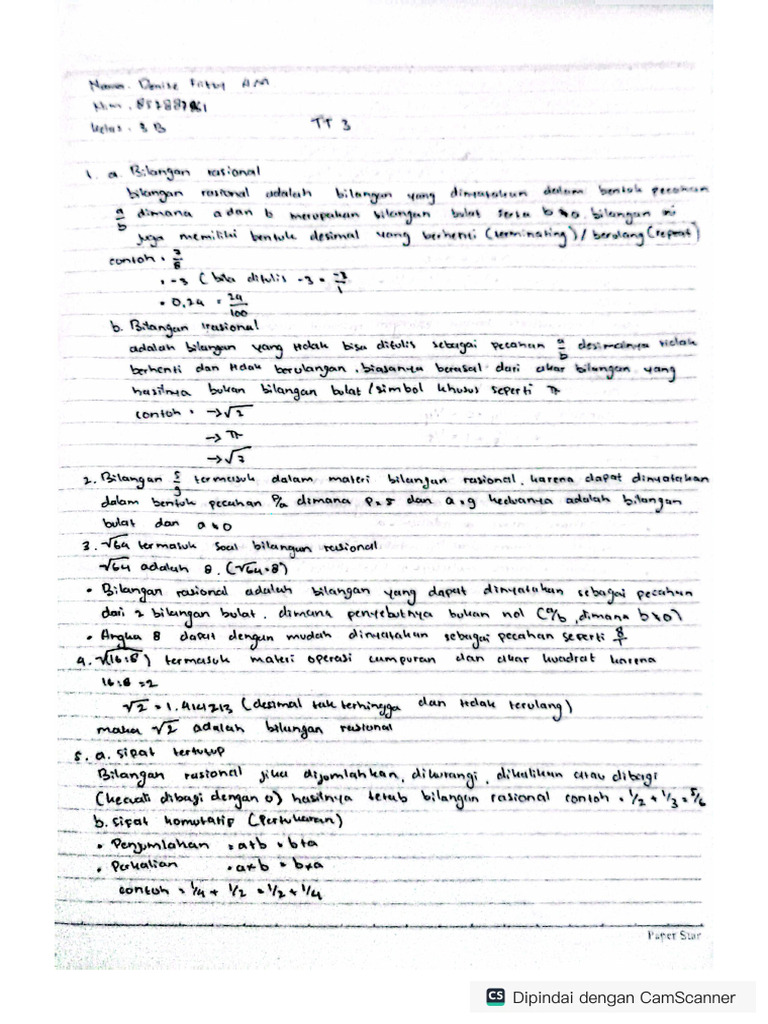 Nama. Denise Fitky AM
Nim. 857887961
Kelas. 3 B TT 3
1. a. Bilangan rasional
bilangan rasional adalah bilangan yang dinyatakan dalam bentuk pecahan
a/b dimana a dan b merupakan bilangan bulat serta b ≠ 0. bilangan ini
juga memiliki bentuk desimal yang berhenti (terminating)/ berulang (repeat)
contoh • 3/8
• -3 (bila ditulis -3 = -3/1
• 0,24 = 24/100
b. Bilangan irasional
adalah bilangan yang tidak bisa ditulis sebagai pecahan a/b desimalnya tidak
berhenti dan tidak berulangan. biasanya berasal dari akar bilangan yang
hasilnya bukan bilangan bulat /simbol khusus seperti π
contoh • →√2
→ π
→√3
2. Bilangan 5/9 termasuk dalam materi bilangan rasional. karena dapat dinyatakan
dalam bentuk pecahan P/a dimana P=5 dan a=9 keduanya adalah bilangan
bulat dan a≠0
3. √64 termasuk soal bilangan rasional
√64 adalah 8. (√64=8)
• Bilangan rasional adalah bilangan yang dapat dinyatakan sebagai pecahan
dari 2 bilangan bulat. dimana penyebutnya bukan nol (a/b, dimana b≠0)
• Angka 8 dapat dengan mudah dinyatakan sebagai pecahan seperti 8/1
4. √(16:8) termasuk materi operasi campuran dan akar kuadrat karena
16:8 =2
√2 = 1.414213 (desimal tak terhingga dan tidak terulang)
maka √2 adalah bilangan rasional
5. a. sipat tertutup
Bilangan rasional jika dijumlahkan, dikurangi, dikalikan atau dibagi
(kecuali dibagi dengan 0) hasilnya tetab bilangan rasional contoh = 1/2 + 1/3 = 5/6
b. sifat komutatif (Pertukaran)
• Penjumlahan = a+b = b+a
• Perkalian = a×b = b×a
contoh = 1/4 + 1/2 = 1/2 + 1/4
Paper Star
CS Dipindai dengan CamScanner